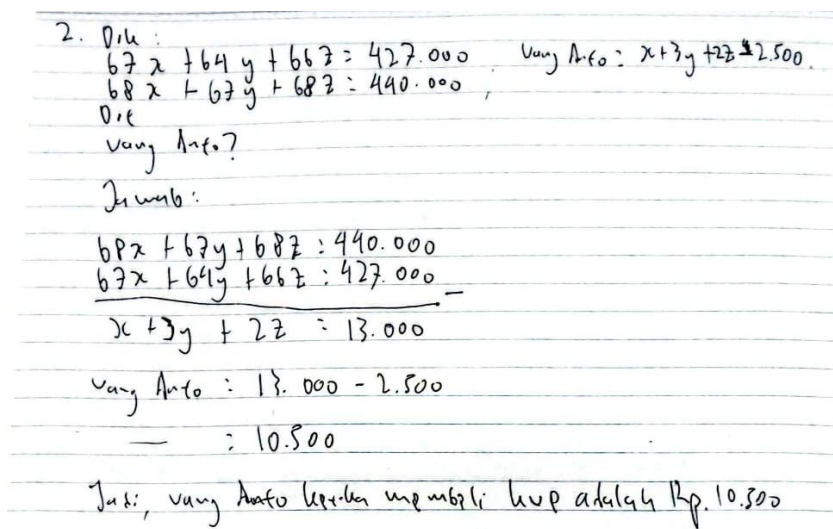 2. Dik :
67x + 64y + 66z = 427.000 Uang Anto : x+3y+2z-2.500.
68x + 67y + 68z : 440.000,
Dit
Uang Anto?
Jawab :
68x + 67y + 68z : 440.000
67x + 64y + 66z : 427.000 -
x + 3y + 2z : 13.000
Uang Anto : 13.000 - 2.500
— : 10.500
Jadi, uang Anto ketika membeli kue adalah Rp. 10.500